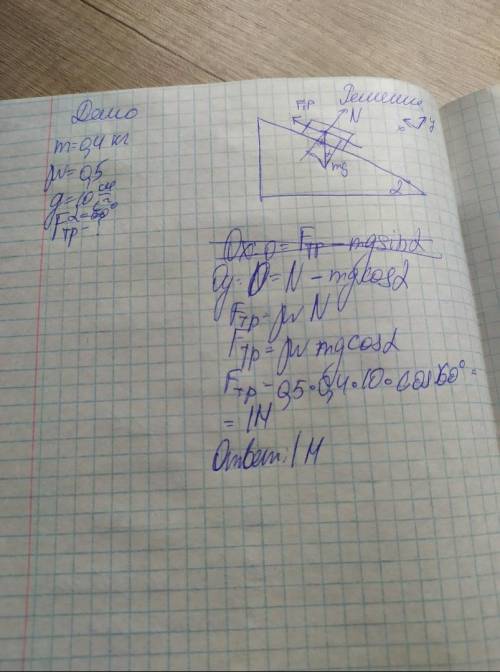 Дано
m=0,4 кг
μ=0,5
g=10 м/с²
α=60°
Fтр=?
Решение
Fтр
N
y
x
mg
α
Ox: 0=Fтр-mgsinα
Oy: 0=N-mgcosα
Fтр=μN
Fтр=μmgcosα
Fтр=0,5·0,4·10·cos60°=
=1Н
Ответ: 1 Н